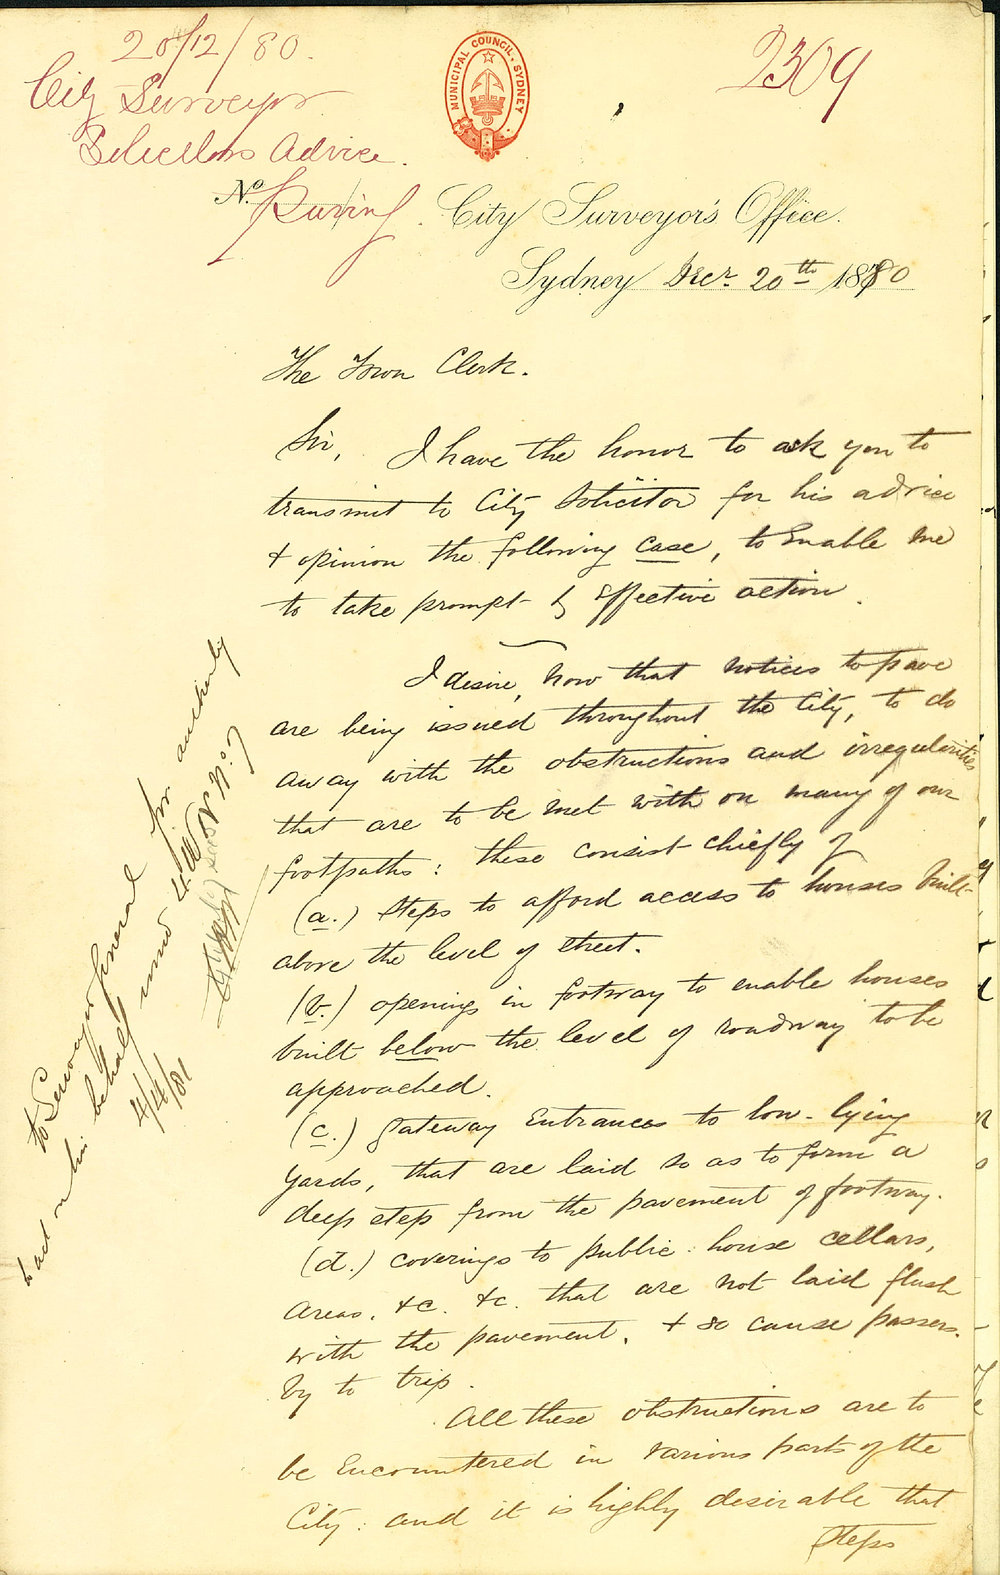 20/12/80.
City Surveyor
Solicitors Advice.
Paving
2309
MUNICIPAL COUNCIL. SYDNEY
No.
City Surveyor's Office.
Sydney Decr. 20th 1880
The Town Clerk.
Sir, I have the honor to ask you to
transmit to City Solicitor for his advice
& opinion the following case, to enable me
to take prompt & effective action.
I desire, now that notices to pave
are being issued throughout the City, to do
away with the obstructions and irregularities
that are to be met with on many of our
footpaths: these consist chiefly of
(a.) Steps to afford access to houses built
above the level of street.
(b.) openings in footway to enable houses
built below the level of roadway to be
approached.
(c.) gateway entrances to low-lying
yards, that are laid so as to form a
deep step from the pavement of footway.
(d.) coverings to public-house cellars,
areas, &c. &c. that are not laid flush
with the pavement, & so cause passers-
by to trip.
All these obstructions are to
be encountered in various parts of the
City: and it is highly desirable that
steps
to Surveyor General for authority
to act on his behalf under
4/4/81